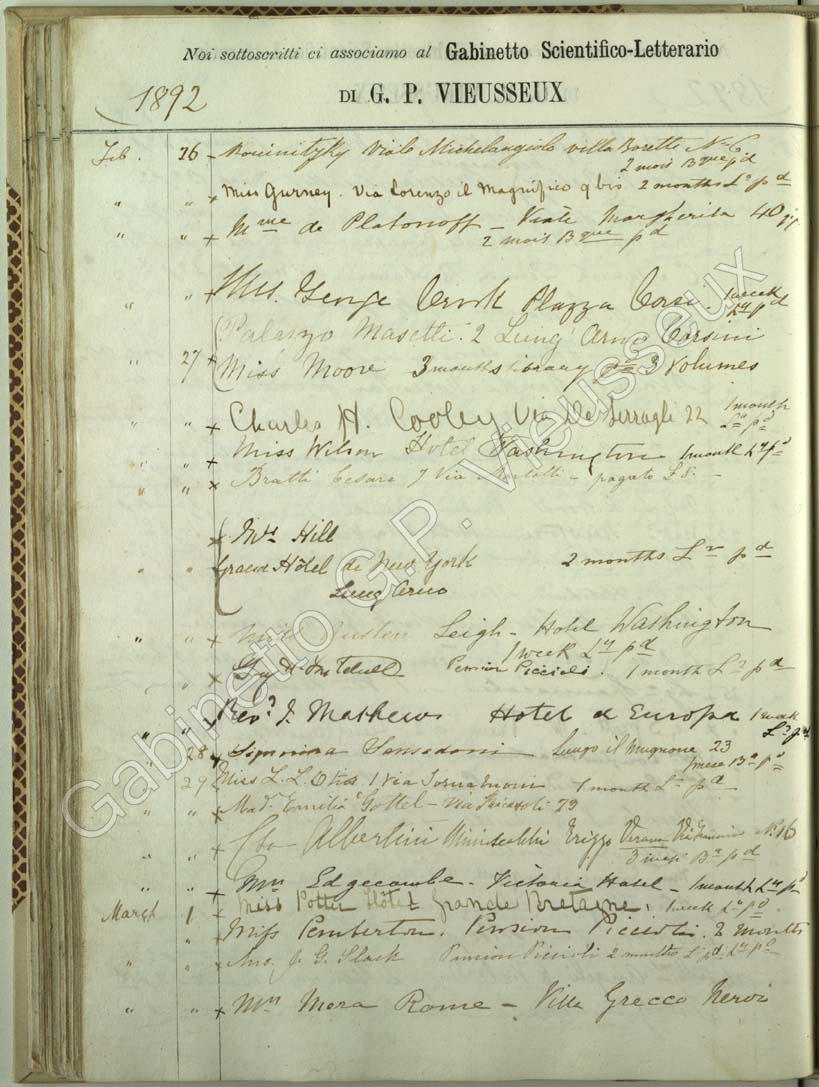 Noi sottoscritti ci associamo al Gabinetto Scientifico-Letterario
1892
DI G. P. VIEUSSEUX
Feb. 26 Viale Michelangiolo villa No 6
2 mois Bque pd
" " x Miss Gurney. Via Lorenzo il Magnifico 9 bis 2 months Ly pd
" " x Mme de Platonoff - Margherita 40
2 mois Bque pd
" " x Mrs. George Piazza Corsi. 1 week
Ly pd
Palazzo Masetti. 2 Lung Arno Corsini
27 x Miss Moore 3 months library 3 Volumes
" " x Charles H. Cooley Via de Serragli 22 1 month
Ly pd
" " x Miss Wilson Hotel Washington 1 month Ly pd
" " x Bratti Cesare 7 Via - pagato L 8. -
x Mrs Hill
" " Grand Hôtel de New York 2 months Ly pd
Lung Arno
" " x Austen Leigh - Hotel Washington
1 week Ly pd
" " x Pension Piccioli. 1 month Ly pd
" " x Revd J. Mathews Hotel d Europa 1 week
Ly pd
" 28 x Lungo il Mugnone 23
1 mese Ba pd
29 Miss L. L. Otis 1 Via Tornabuoni 1 month Ly pd
" " x Mad. Emilia Gottel - Via
" " x Albertini Miniscalchi Erizzo Verona No 16
3 mesi Ba pd
" " x Mrs Edgecombe - Victoria Hotel - 1 month Ly pd
March 1 x Miss Potter Hôtel Grande Bretagne, 1 week Ly pd
" x Miss Pemberton. Pension Piccioli. 2 months
" " x J. G. Slack Pension Piccioli 2 months Ly pd
" " x Mrs Mera Rome - Villa Grecco Nervi
Gabinetto G.P. Vieusseux